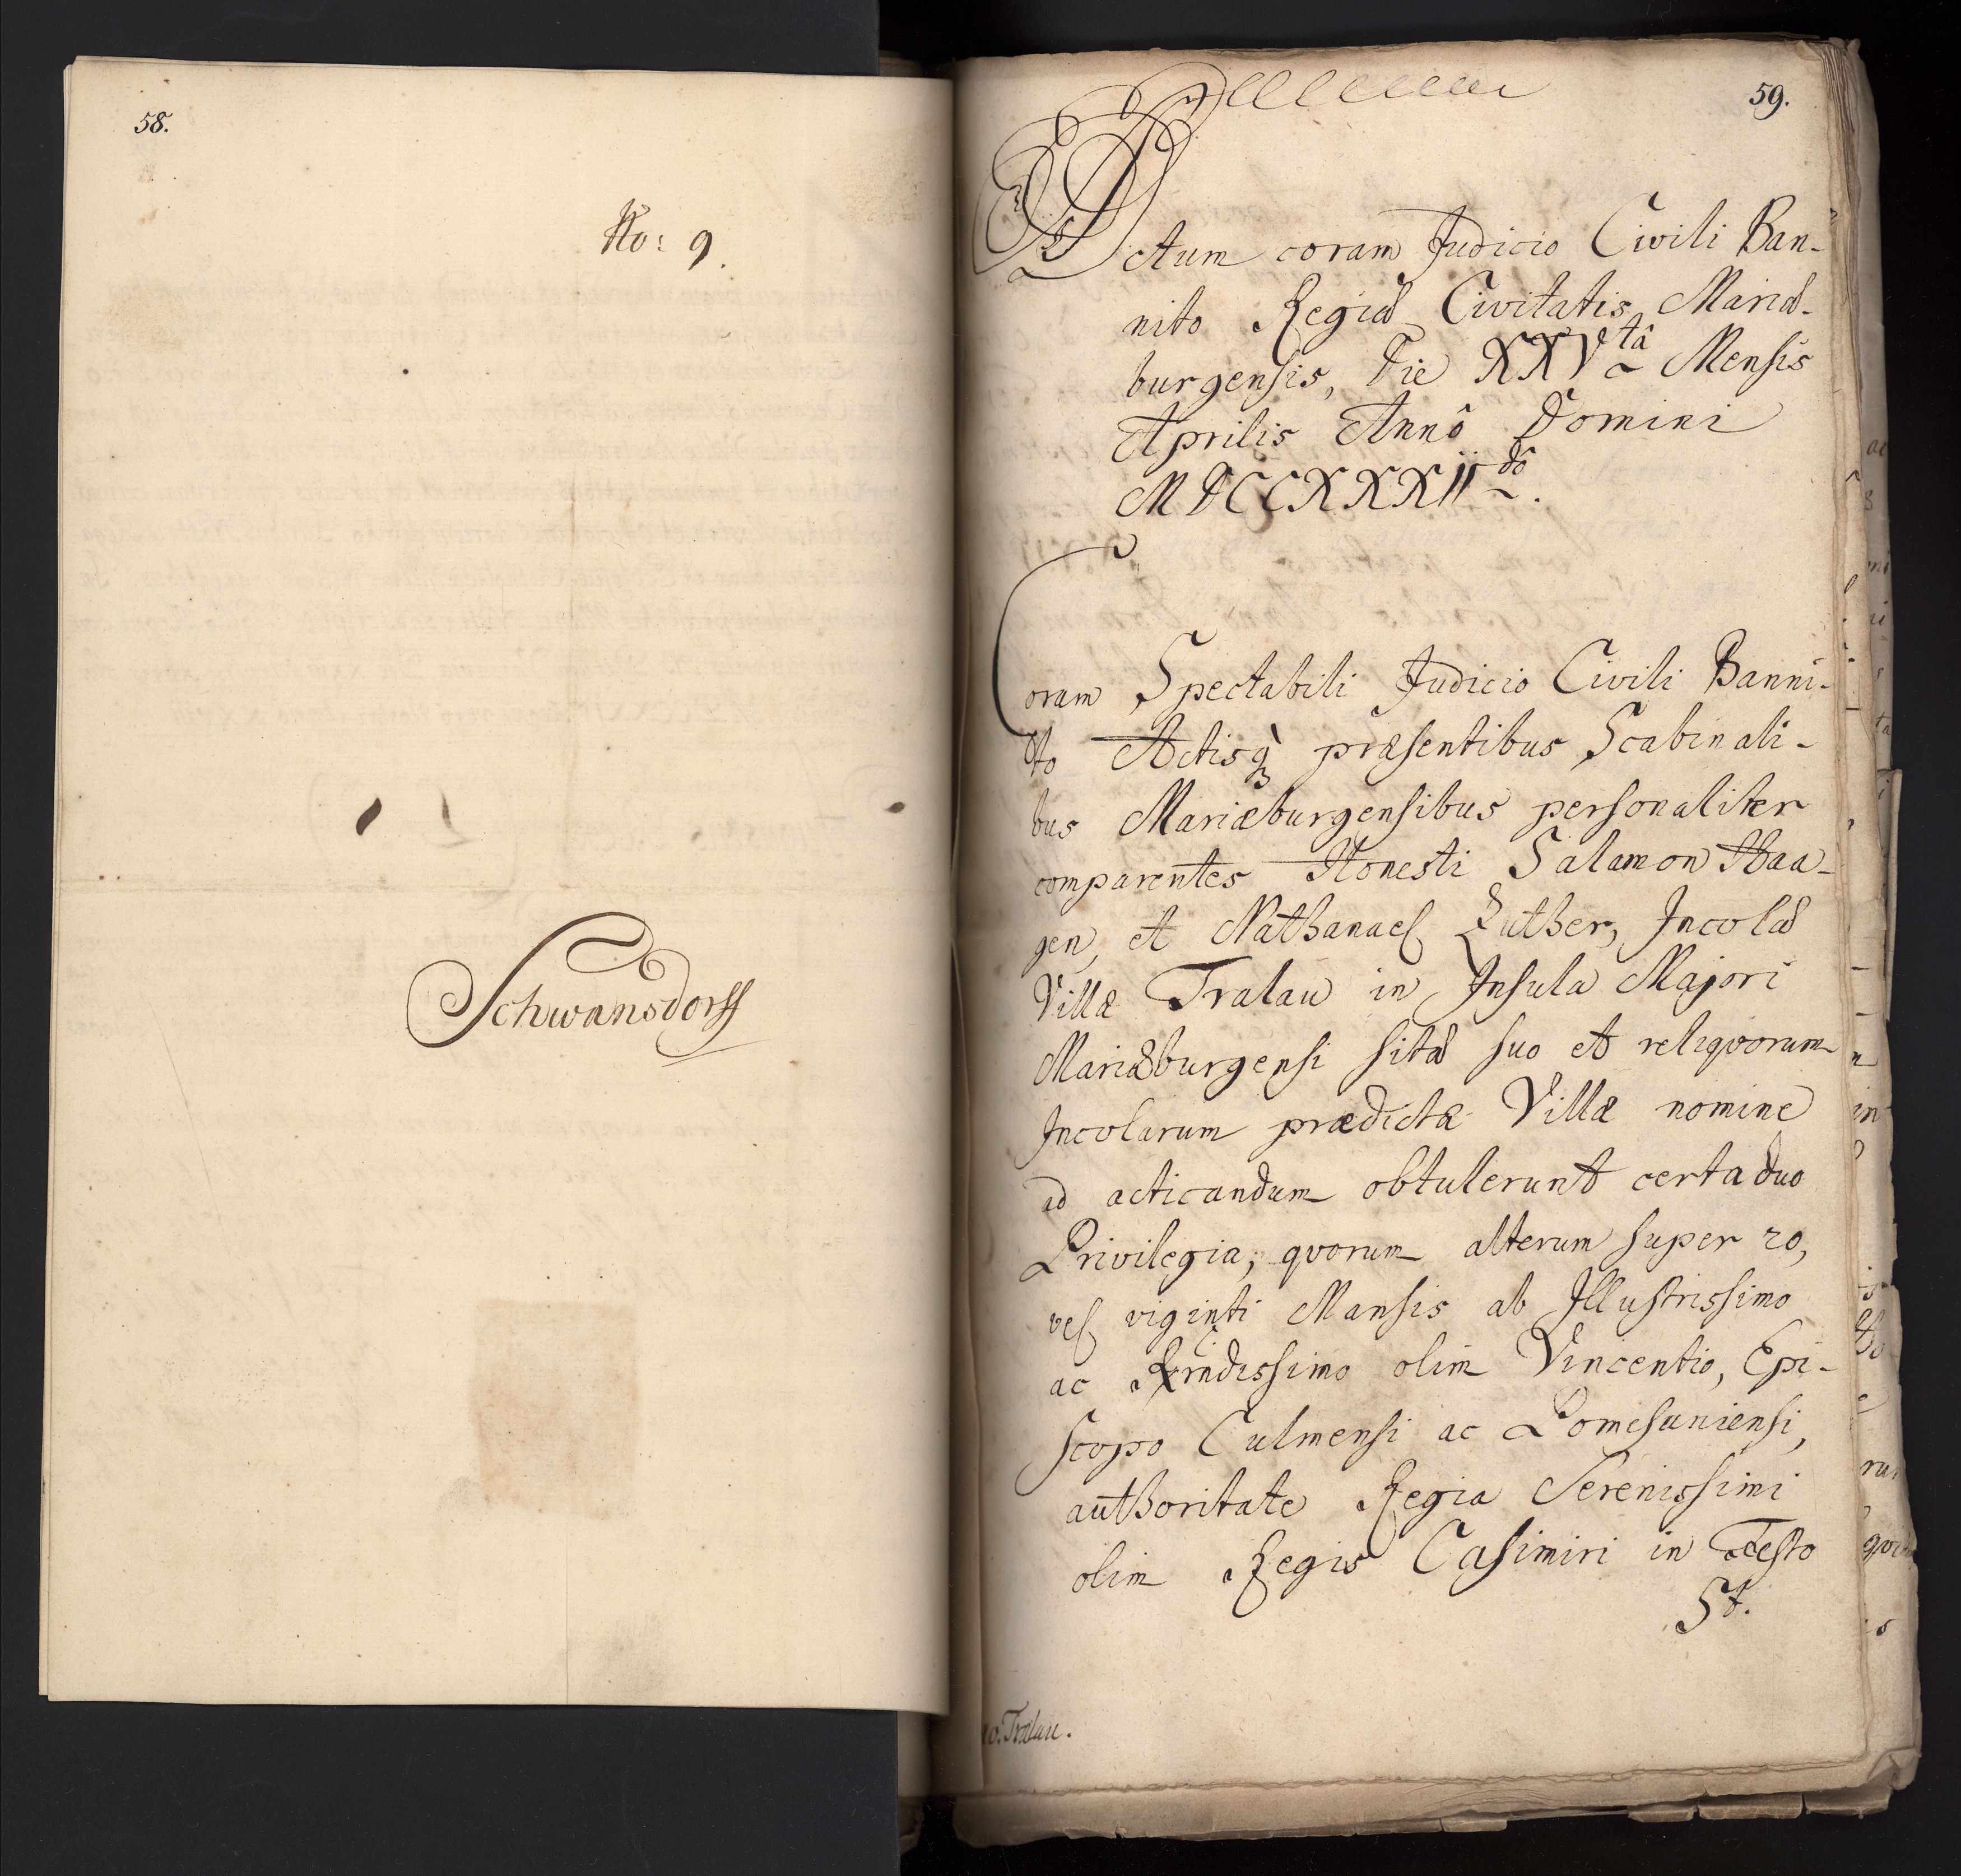 58.
No: 9.
Schwansdorff
59.
Actum coram Judicio Civili Ban-
nito Regiæ Civitatis Mariæ-
burgensis, Die XXVtâ Mensis
Aprilis Annô Domini
MDCCXXXIIdô.
Coram Spectabili Judicio Civili Banni-
to Actisq3 præsentibus Scabinali-
bus Mariæburgensibus personaliter
comparentes Honesti Salamon Haa-
gen, et Nathanael Luther, Incolæ
Villæ Tralau in Insula Majori
Mariæburgensi sitæ suo et reliqvorum
Incolarum prædictæ Villæ nomine
ad acticandum obtulerunt certa duo
Privilegia, qvorum alterum super 20,
vel viginti Mansis ab Illustrissimo
ac Rrndissimo olim Vincentio, Epi-
scopo Culmensi ac Pomesaniensi,
authoritate Regia Serenissimi
olim Regis Casimiri in Festo
St.
10. Tralau.